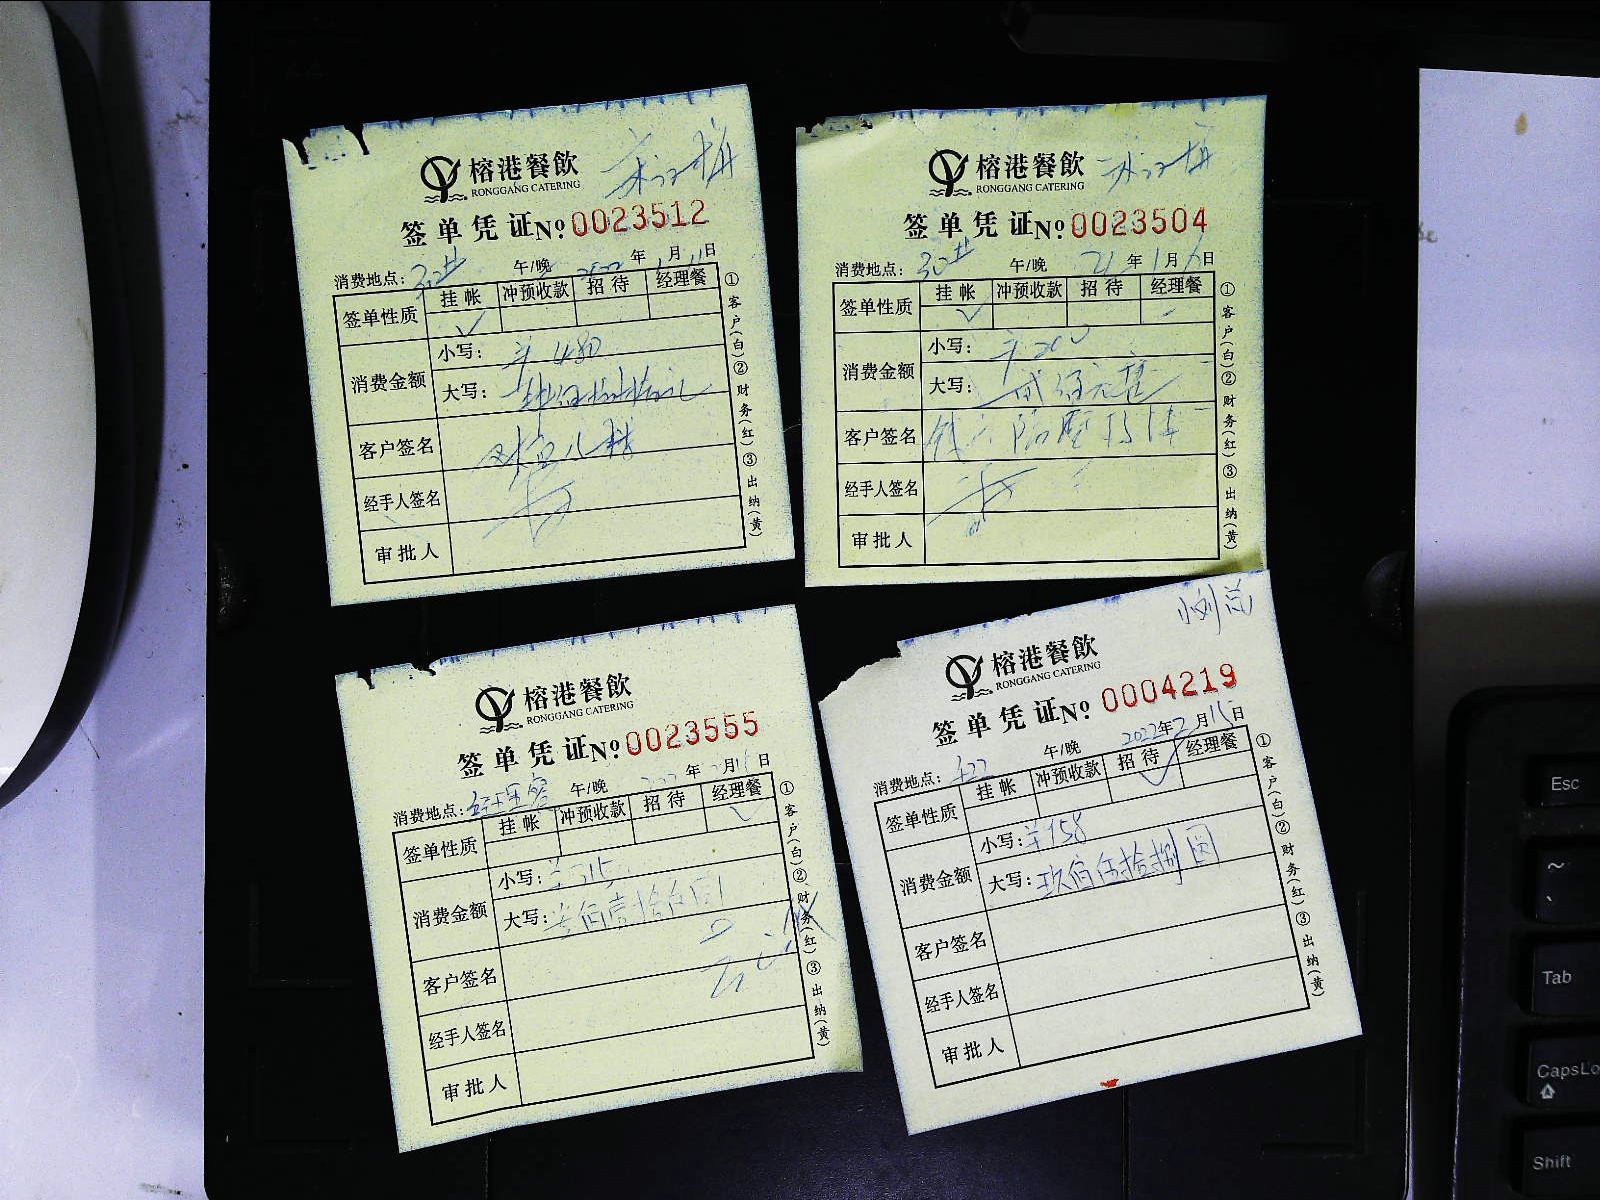 榕港餐飲
RONGGANG CATERING
签单凭证 № 0023512
消费地点： 午/晚 2022年1月11日
签单性质 挂帐 冲预收款 招待 经理餐
✓
消费金额 小写：￥480
大写：
客户签名
经手人签名
审批人
①客户(白)②财务(红)③出纳(黄)
榕港餐飲
RONGGANG CATERING
签单凭证 № 0023504
消费地点： 午/晚 年1月 日
签单性质 挂帐 冲预收款 招待 经理餐
✓
消费金额 小写：￥200
大写：贰佰元整
客户签名
经手人签名
审批人
①客户(白)②财务(红)③出纳(黄)
榕港餐飲
RONGGANG CATERING
签单凭证 № 0023555
消费地点：经理餐 午/晚 2022年 月15日
签单性质 挂帐 冲预收款 招待 经理餐
✓
消费金额 小写：￥715
大写：柒佰壹拾伍圆
客户签名
经手人签名
审批人
①客户(白)②财务(红)③出纳(黄)
小刘总
榕港餐飲
RONGGANG CATERING
签单凭证 № 0004219
消费地点：422 午/晚 2022年2月15日
签单性质 挂帐 冲预收款 招待 经理餐
✓
消费金额 小写：￥958
大写：玖佰伍拾捌圆
客户签名
经手人签名
审批人
①客户(白)②财务(红)③出纳(黄)
Esc
~
Tab
CapsLo
Shift